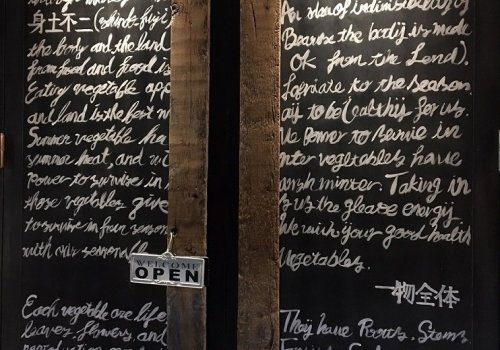 身土不二 (shindo fuji)
An idea of indivisibility of
the body and the land
Because the body is made
from food and food is
OK from the Land).
Eating vegetable app
ropriate to the season
and land is the best w
ay to be (ealthy for us.
Summer vegetable ha
ve Power to
summer heat, and wi
nter vegetables have
Power to survive in
winter. Taking in
those vegetables give
s us the energy
to survive in four season
We wish your good health
with our seasonal
Vegetables.
WELCOME
OPEN
一物全体
Each vegetable are life
They have Roots, Stems,
leaves, flowers, and